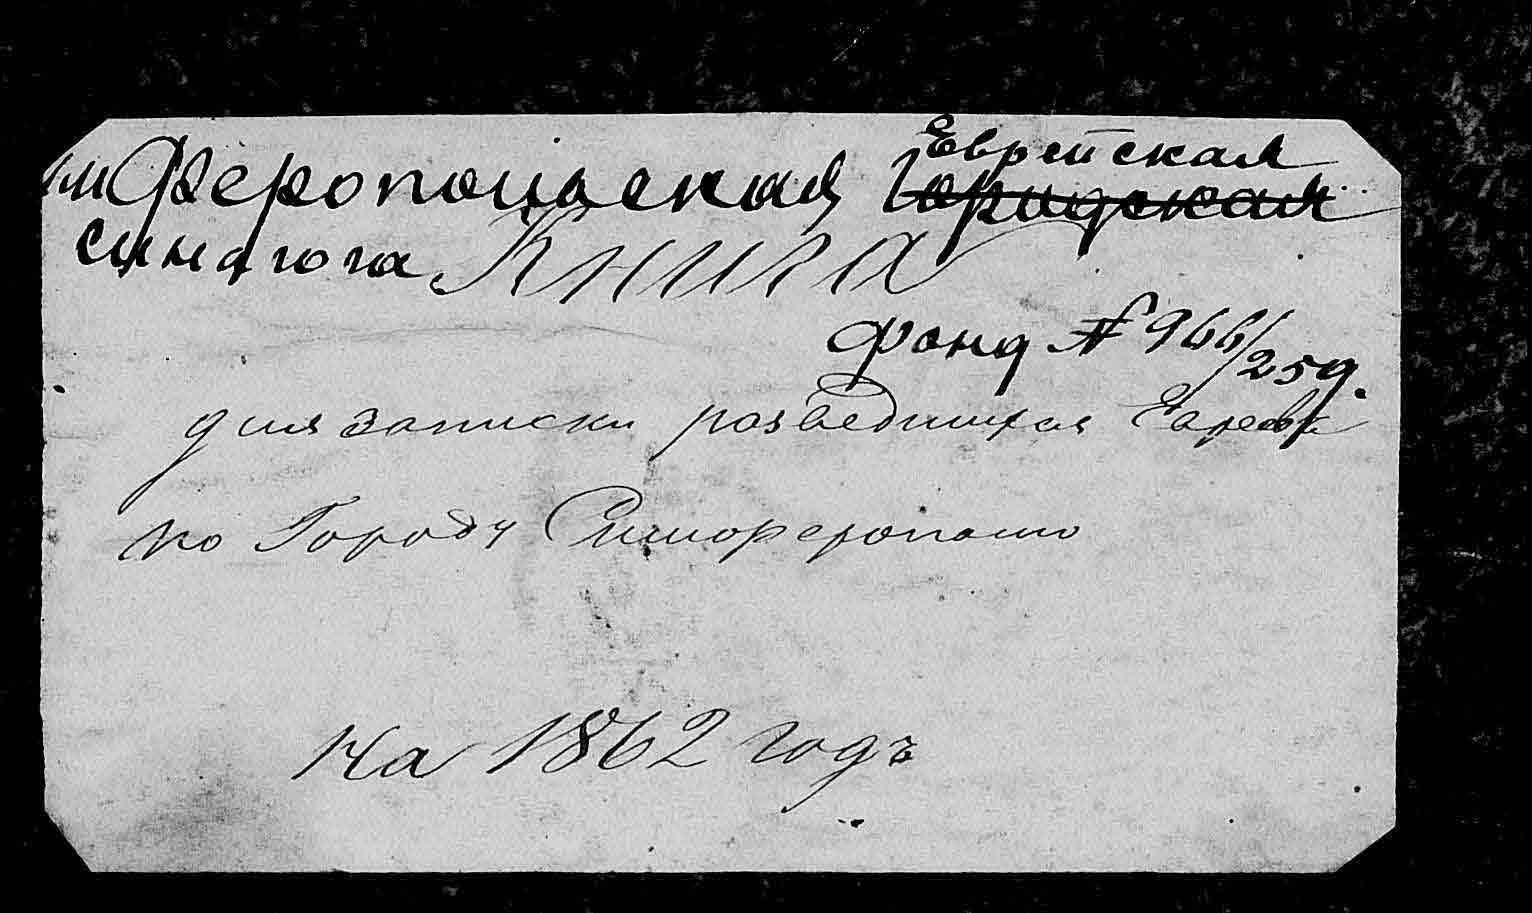 имферопольская Еврейская
Городская
синагога Книга
фонд № 966/259.
для записки разведшихся Евреевъ
по Городу Симферополю
на 1862 годъ